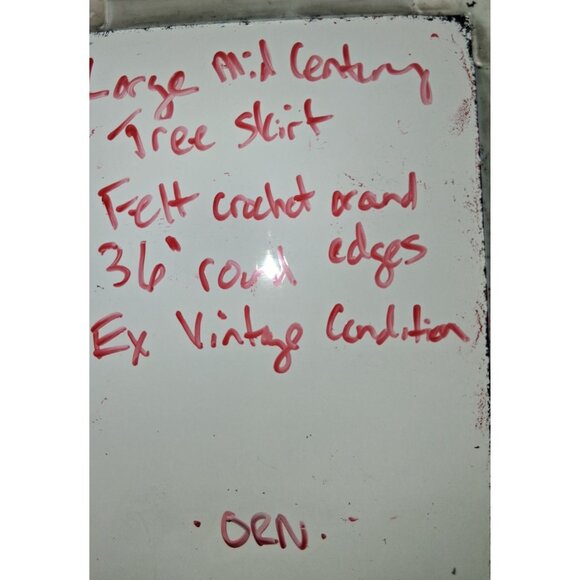 Large Mid Century
Tree Skirt
Felt crochet around
36" round edges
Ex Vintage Condition
· ORN ·